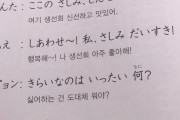 んた: ここの さしみ, し
여기 생선회 신선하고 맛있어.
え : しあわせ〜! 私、さしみ だいすき!
행복해~! 나 생선회 아주 좋아해!
ョン: きらいなのは いったい 何?
なに
싫어하는 건 도대체 뭐야?